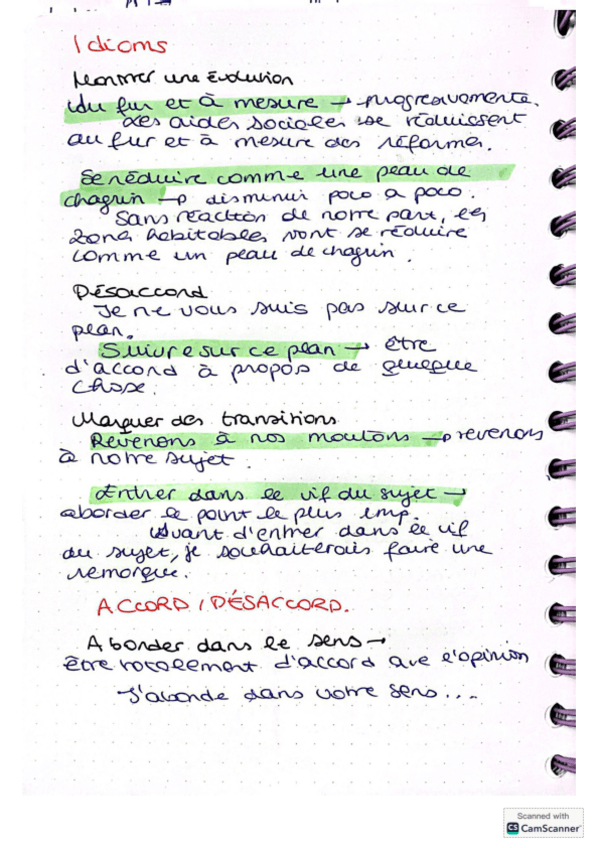 Idioms
Montrer une évolution
Au fur et à mesure → progresivamente.
Les aides sociales se réduisent
au fur et à mesure des réformes.
Se réduire comme une peau de
chagrin → disminuir poco a poco.
Sans réaction de notre part, les
zones habitables vont se réduire
comme un peau de chagrin.
Désaccord
Je ne vous suis pas sur ce
plan.
Suivre sur ce plan → être
d'accord à propos de quelque
chose.
Marquer des transitions
Revenons à nos moutons → revenons
à notre sujet.
Entrer dans le vif du sujet →
aborder le point le plus imp.
Avant d'entrer dans le vif
du sujet, je souhaiterais faire une
remarque.
ACCORD / DÉSACCORD.
Abonder dans le sens →
être totalement d'accord ave l'opinion
J'abonde dans votre sens...
Scanned with
CS CamScanner